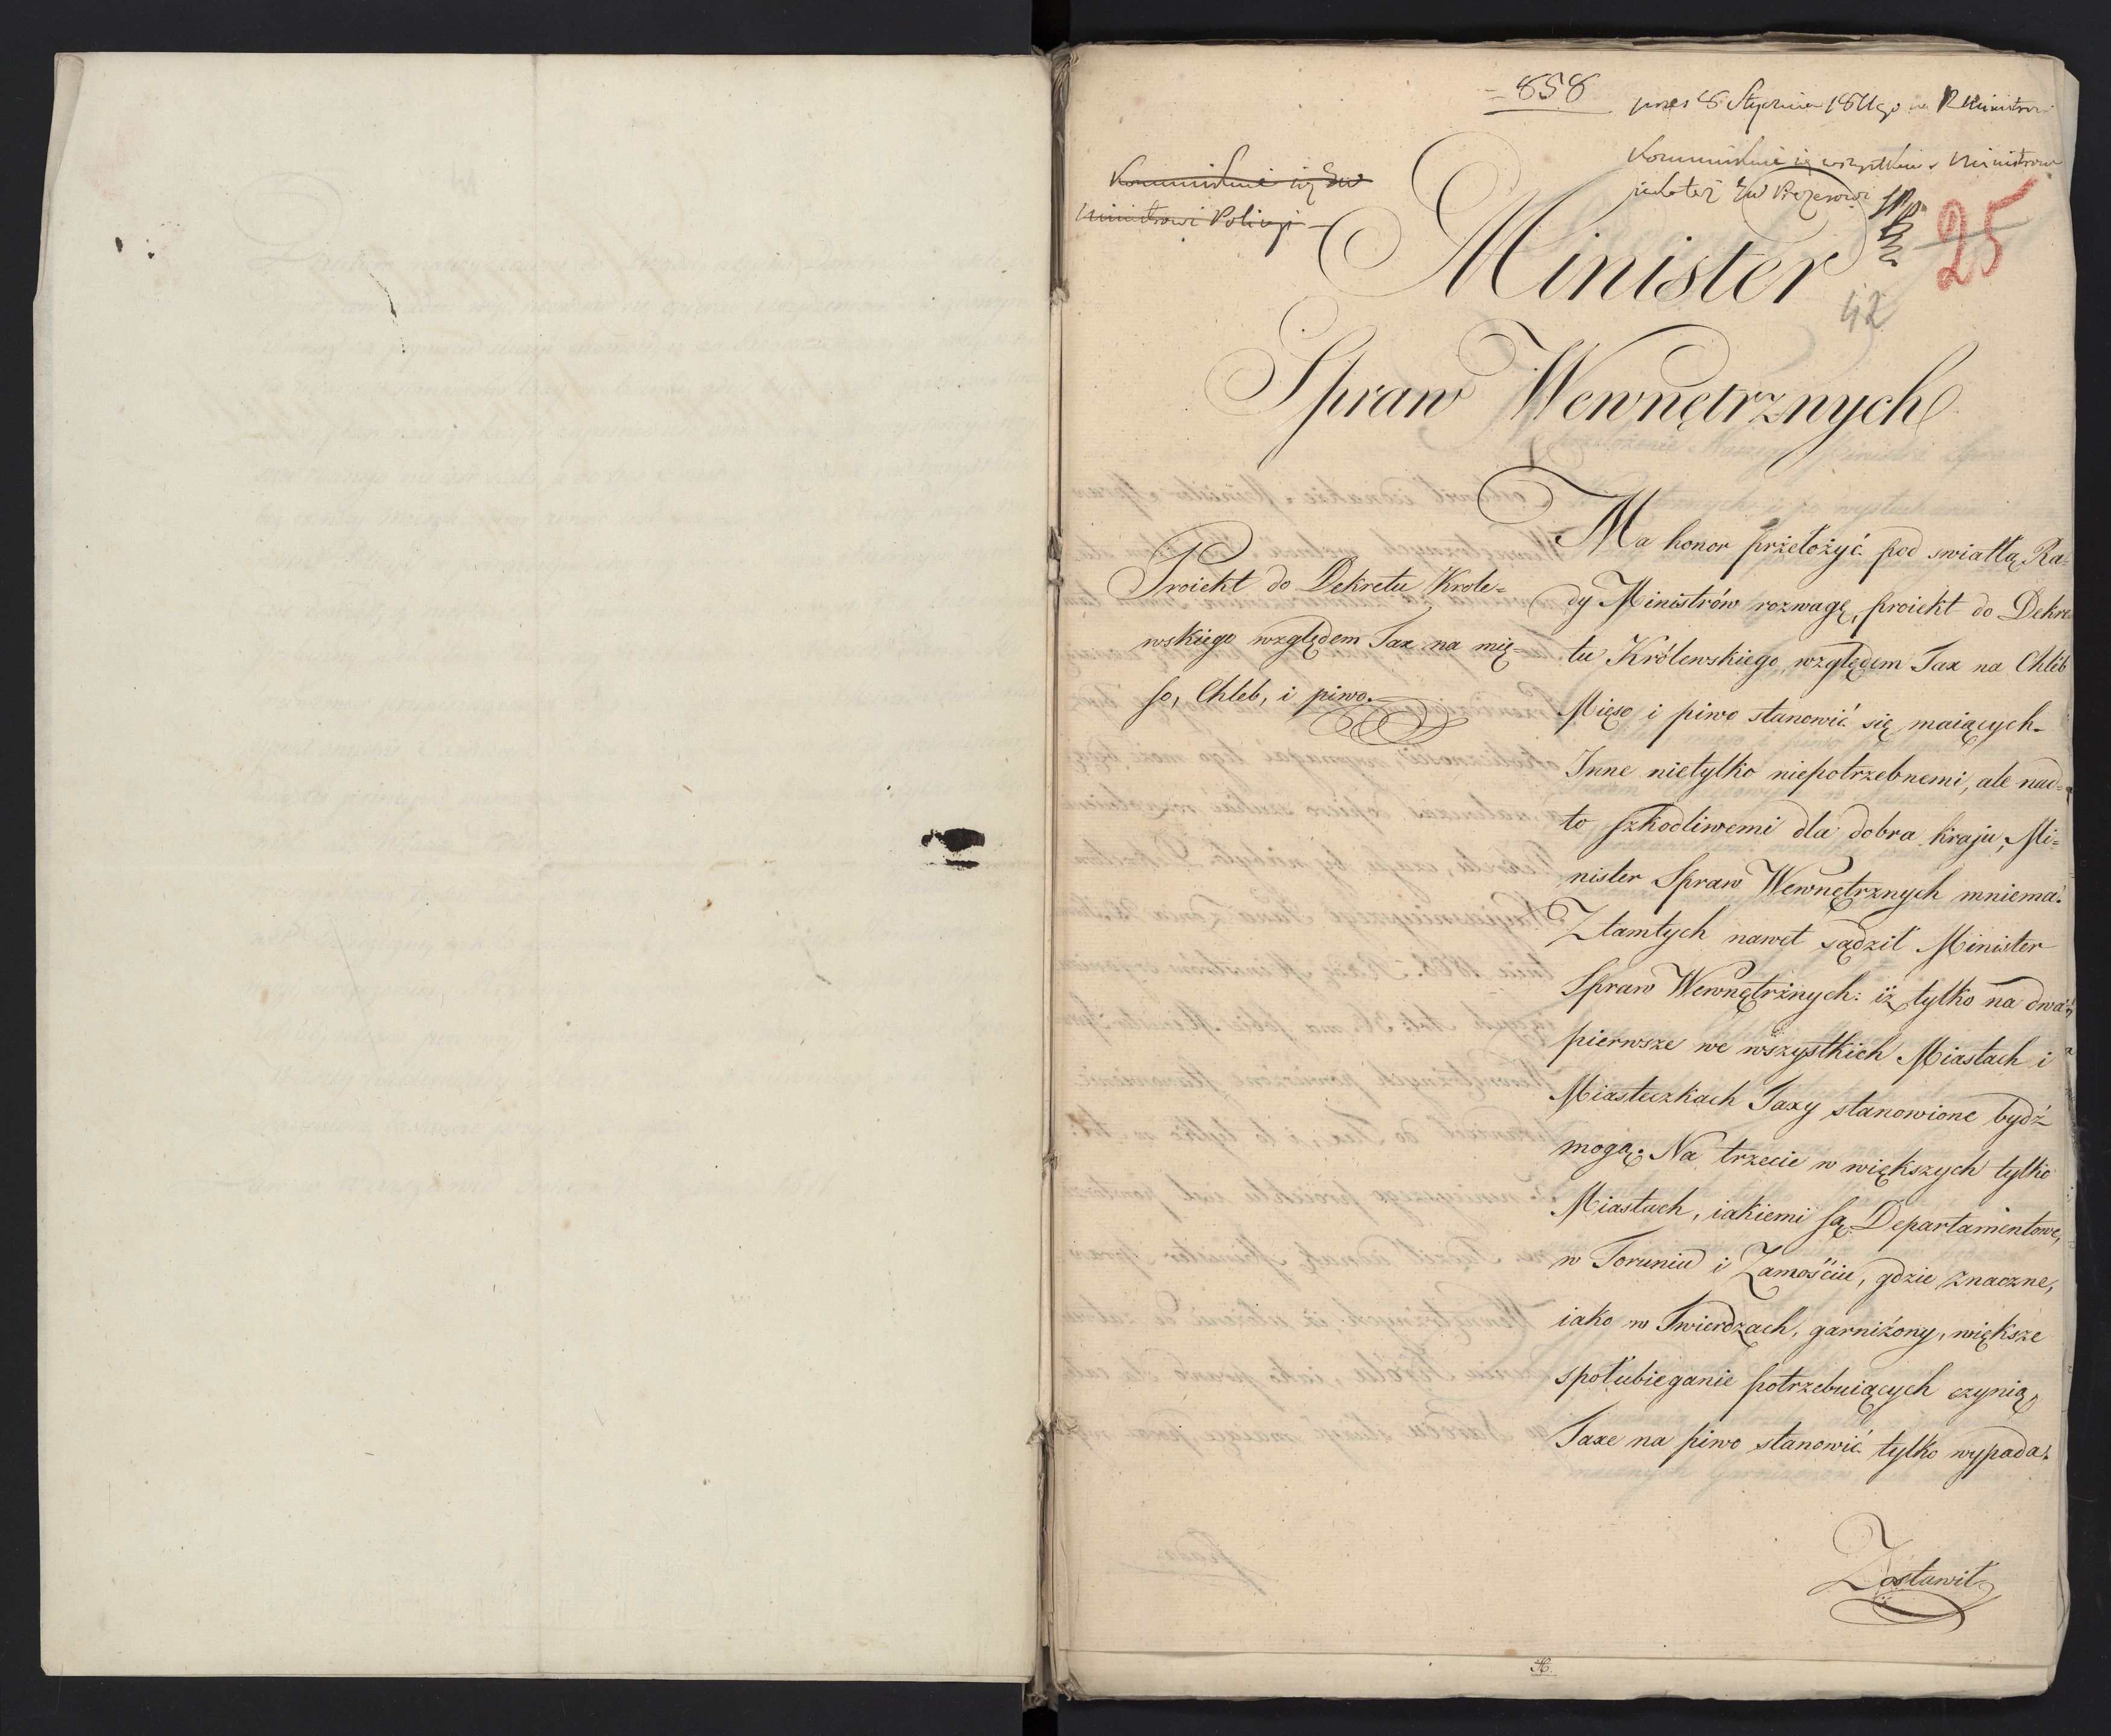 858
Kommunikuie się JW
Ministrowi Policyi
Kommunikuie się wszystkim Ministrom
25
42
Minister
Spraw Wewnętrznych
Proiekt do Dekretu Krole=
wskiego względem Tax na mię=
so, Chleb, i piwo.
Ma honor przełożyć pod swiatłą Ra=
dy Ministrów rozwagę, proiekt do Dekre
tu Królewskiego, względem Tax na Chleb
Mięso i piwo stanowić się maiących.
Inne nietylko niepotrzebnemi, ale nad=
to szkodliwemi dla dobra kraju, Mi=
nister Spraw Wewnętrznych mniema.
Z tamtych nawet sądził Minister
Spraw Wewnętrznych: iż tylko na dwa
pierwsze we wszystkich Miastach i
Miasteczkach Taxy stanowione bydź
mogą. Na trzecie w większych tylko
Miastach, iakiemi są Departamentowe,
w Toruniu i Zamościu, gdzie znaczne,
iako w Twierdzach, garniżony, większe
społubieganie potrzebuiących czynią,
Taxe na piwo stanowić tylko wypada.
Zostawił